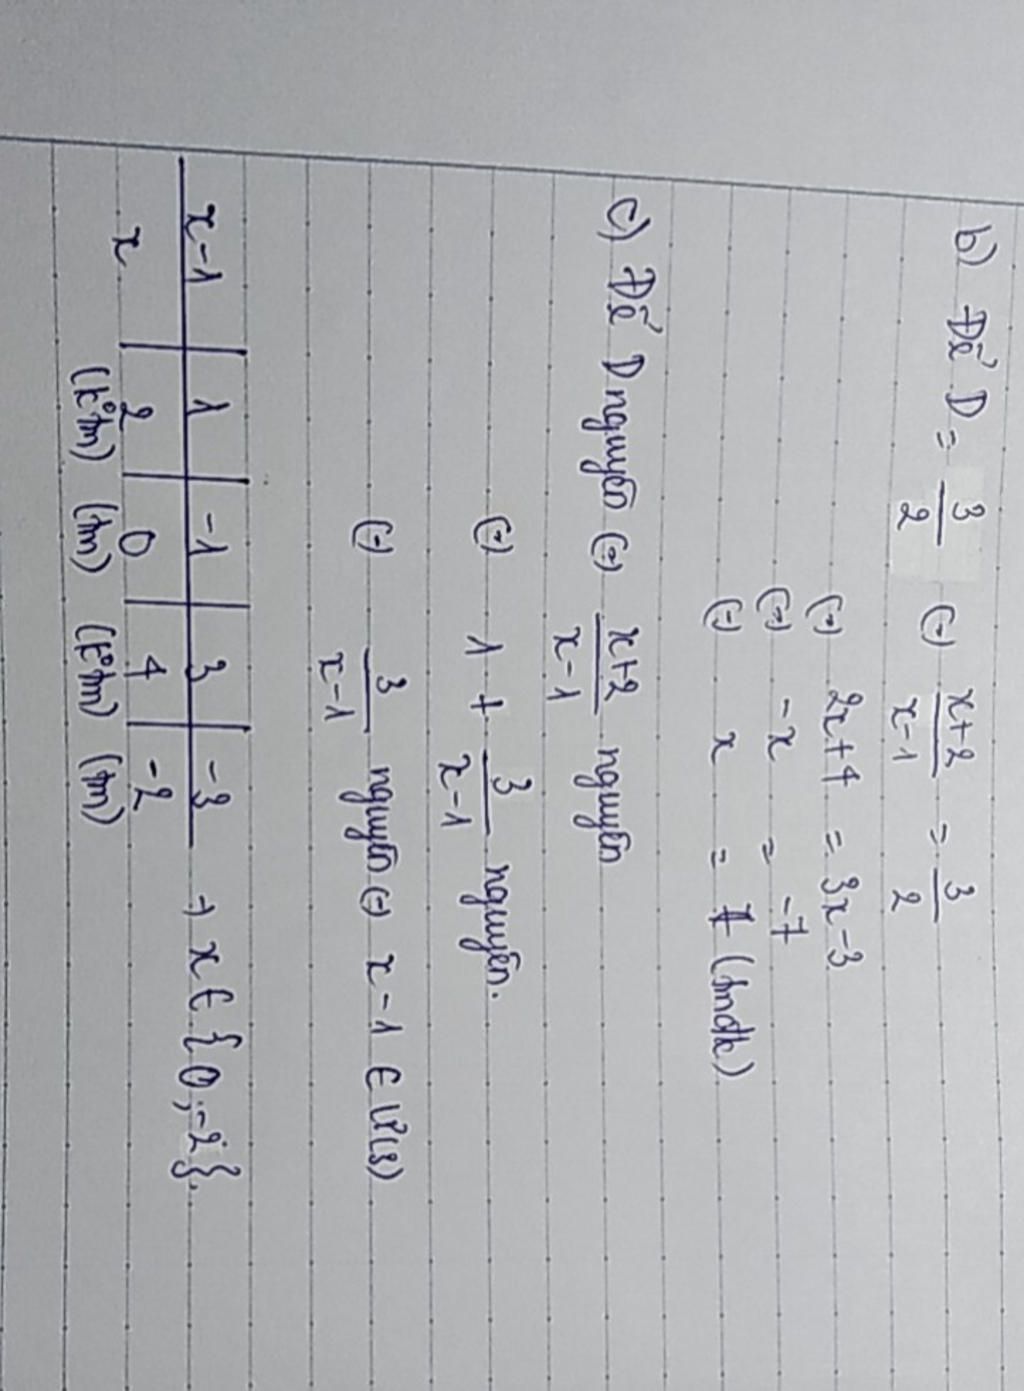 b) Để D = 3/2 (=) x+2/x-1 = 3/2
(=) 2x+4 = 3x-3
(=) -x = -7
(=) x = 7 (tmđk)
c) Để D nguyên (=) x+2/x-1 nguyên
(=) 1 + 3/x-1 nguyên.
(=) 3/x-1 nguyên (=) x-1 ∈ Ư(3)
x-1 | 1 | -1 | 3 | -3 → x ∈ {0;-2}.
x | 2 | 0 | 4 | -2
(k°tm) (tm) (k°tm) (tm)